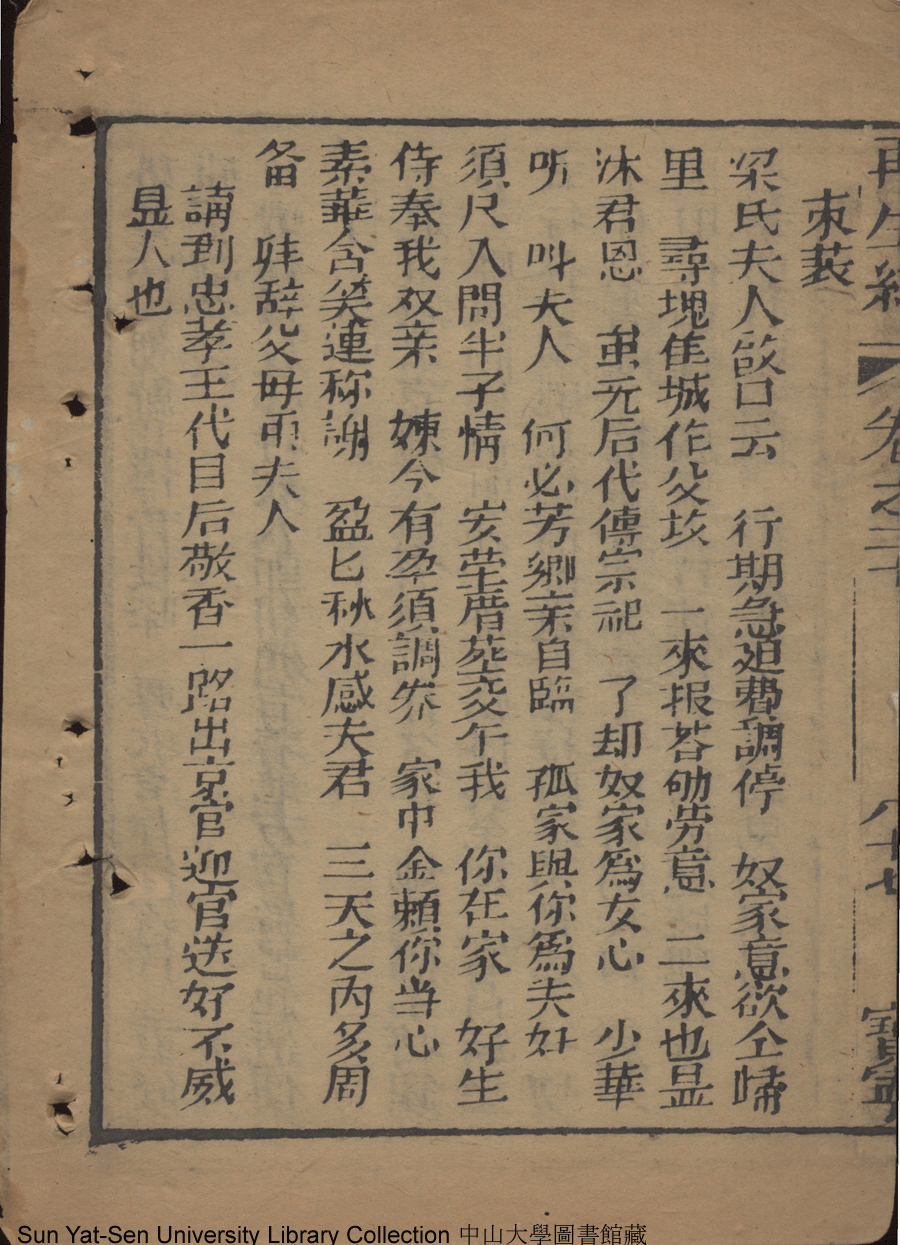 再生緣 卷之二十 八十七 寶寧
束裝
梁氏夫人啟口云 行期急迫費調停 奴家意欲仝歸
里 尋塊佳城作父坟 一來报答劬劳意 二來也显
沐君恩 虽元后代傳宗祀 了却奴家為女心 少華
听 叫夫人 何必芳卿亲自臨 孤家與你為夫妇
須尺入間半子情 安茔厝墓交乍我 你在家 好生
侍奉我双亲 娕今有孕須調养 家中金賴你当心
素華含笑蓮称謝 盈匕秋水感夫君 三天之內多周
备 拜辞父母两夫人
講到忠孝王代目后敬香一路出京官迎官送好不威
显人也
Sun Yat-Sen University Library Collection 中山大學圖書館藏